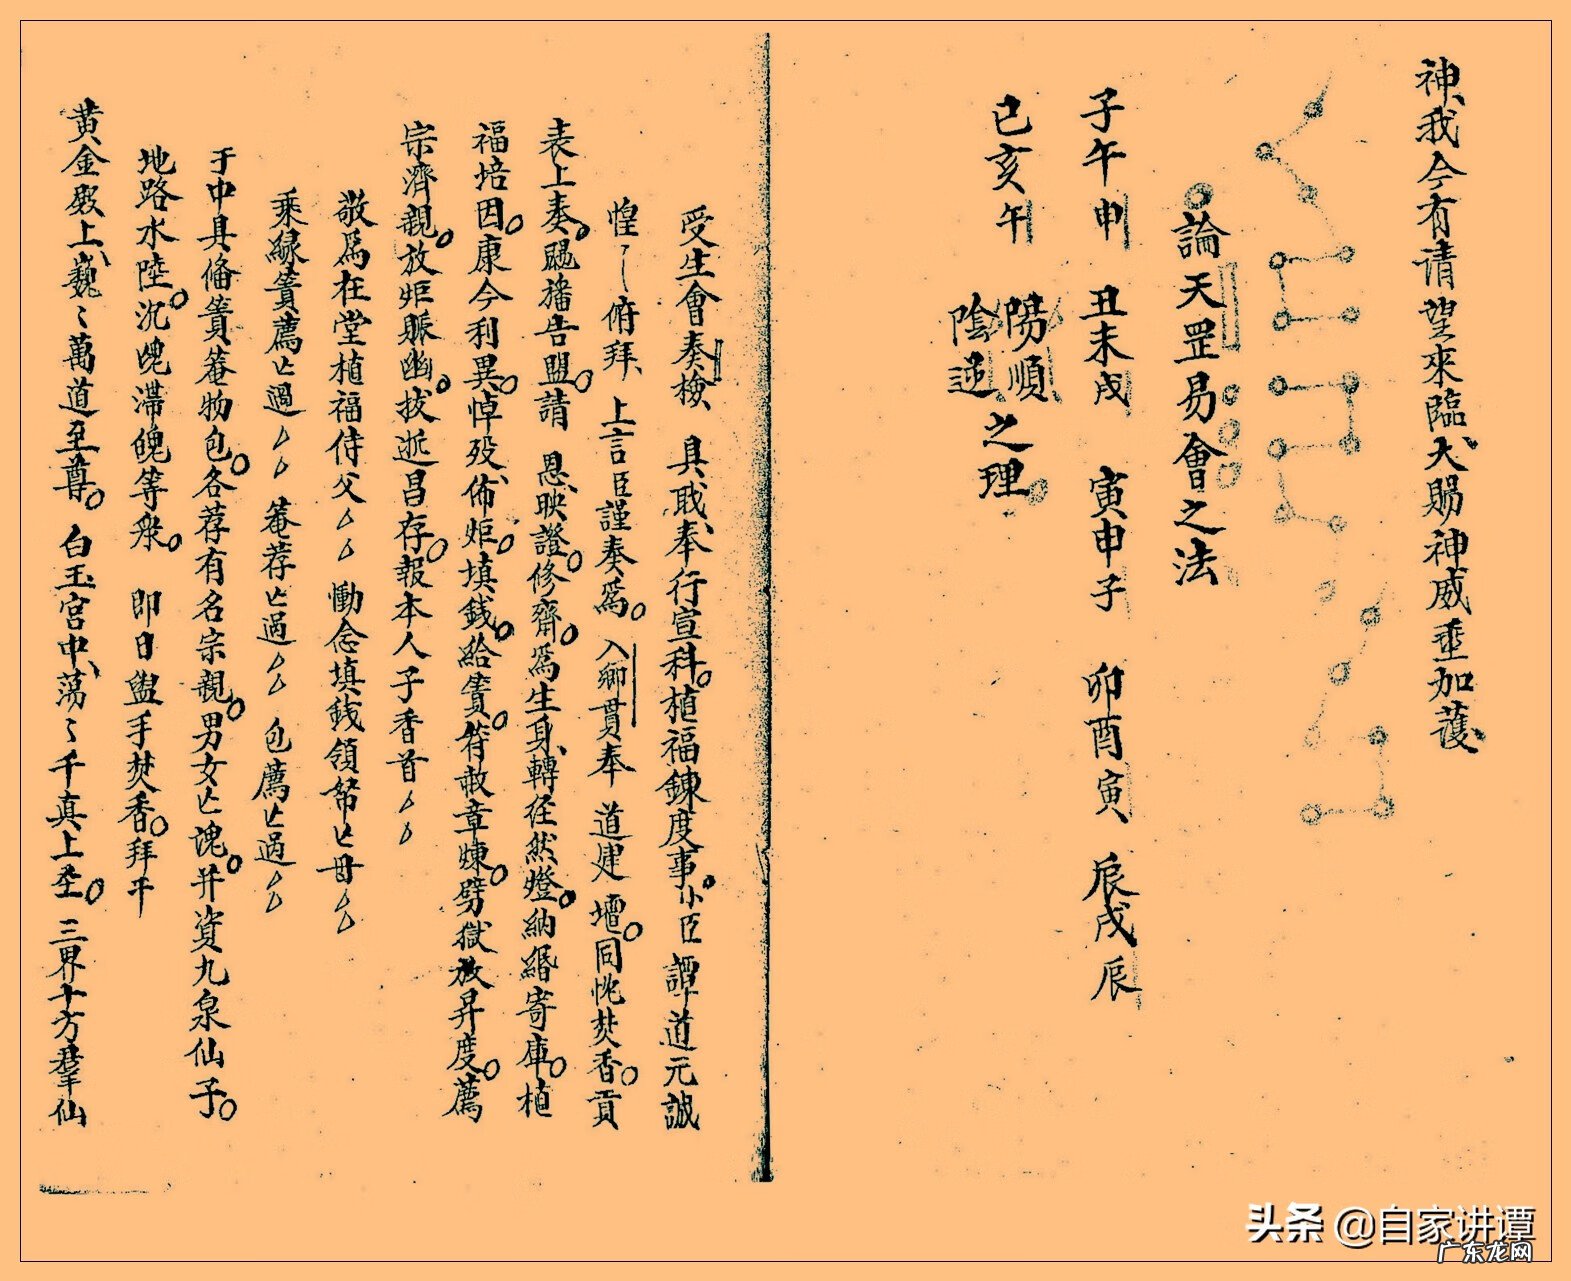 神我今有请望來臨大賜神威垂加護
論天罡易會之法
子午申 丑未戌 寅申子 卯酉寅 辰戌辰
已亥午 陽順
陰逆 之理
受生會奏檢 具戝奉行宣科植福鍊度事小臣譚道元誠
惶〻俯拜 上言臣謹奏爲 入鄉貫奉 道建壇同忱焚香貢
表上奏颺旛告盟請 恩映證修齋爲生身轉径然燈納緡寄庫植
福培因康今利異悼歿佈炬填錢給簀符赦章煉劈獄放昇度薦
宗濟親放炬賑幽拔逝昌存報本人子香首
敬爲在堂植福侍父 慟念填錢領帑亡母
乘緣簀薦亡過 菴荐亡過 包薦亡過
于中具俻簀菴物包各荐有名宗親男女亡魂并資九泉仙子
地路水陸沉魂滯魄等衆 即日盥手焚香拜干
黄金殿上巍〻萬道至尊 白玉宫中蕩〻千真上圣 三界十方羣仙
头条 @自家讲谭
广东龙网